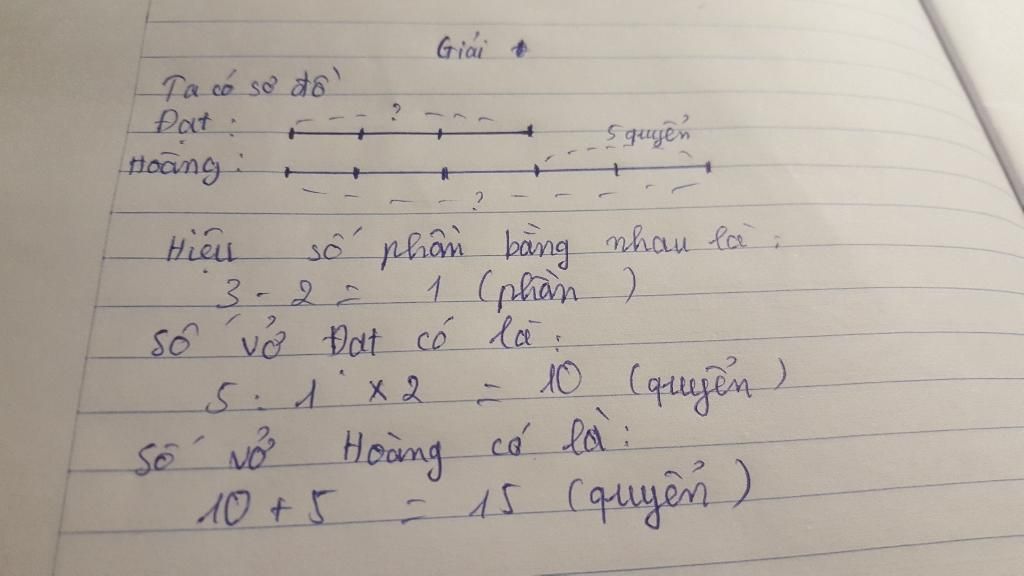 Giải
Ta có sơ đồ
Đạt :
?
5 quyển
Hoàng :
?
Hiệu số phần bằng nhau là :
3 - 2 = 1 (phần )
Số vở Đạt có là :
5 : 1 x 2 = 10 (quyển )
Số vở Hoàng có là :
10 + 5 = 15 (quyển )